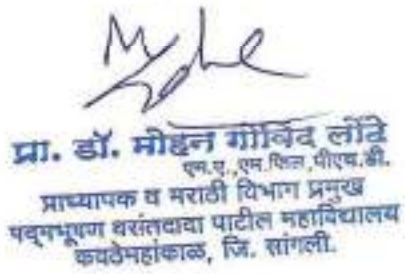 प्रा. डॉ. मोहन गोविंद लोंढे
एम.ए.,एम.फिल.,पीएच.डी.
प्राध्यापक व मराठी विभाग प्रमुख
पद्मभूषण वसंतदादा पाटील महाविद्यालय
कवठेमहांकाळ, जि. सांगली.